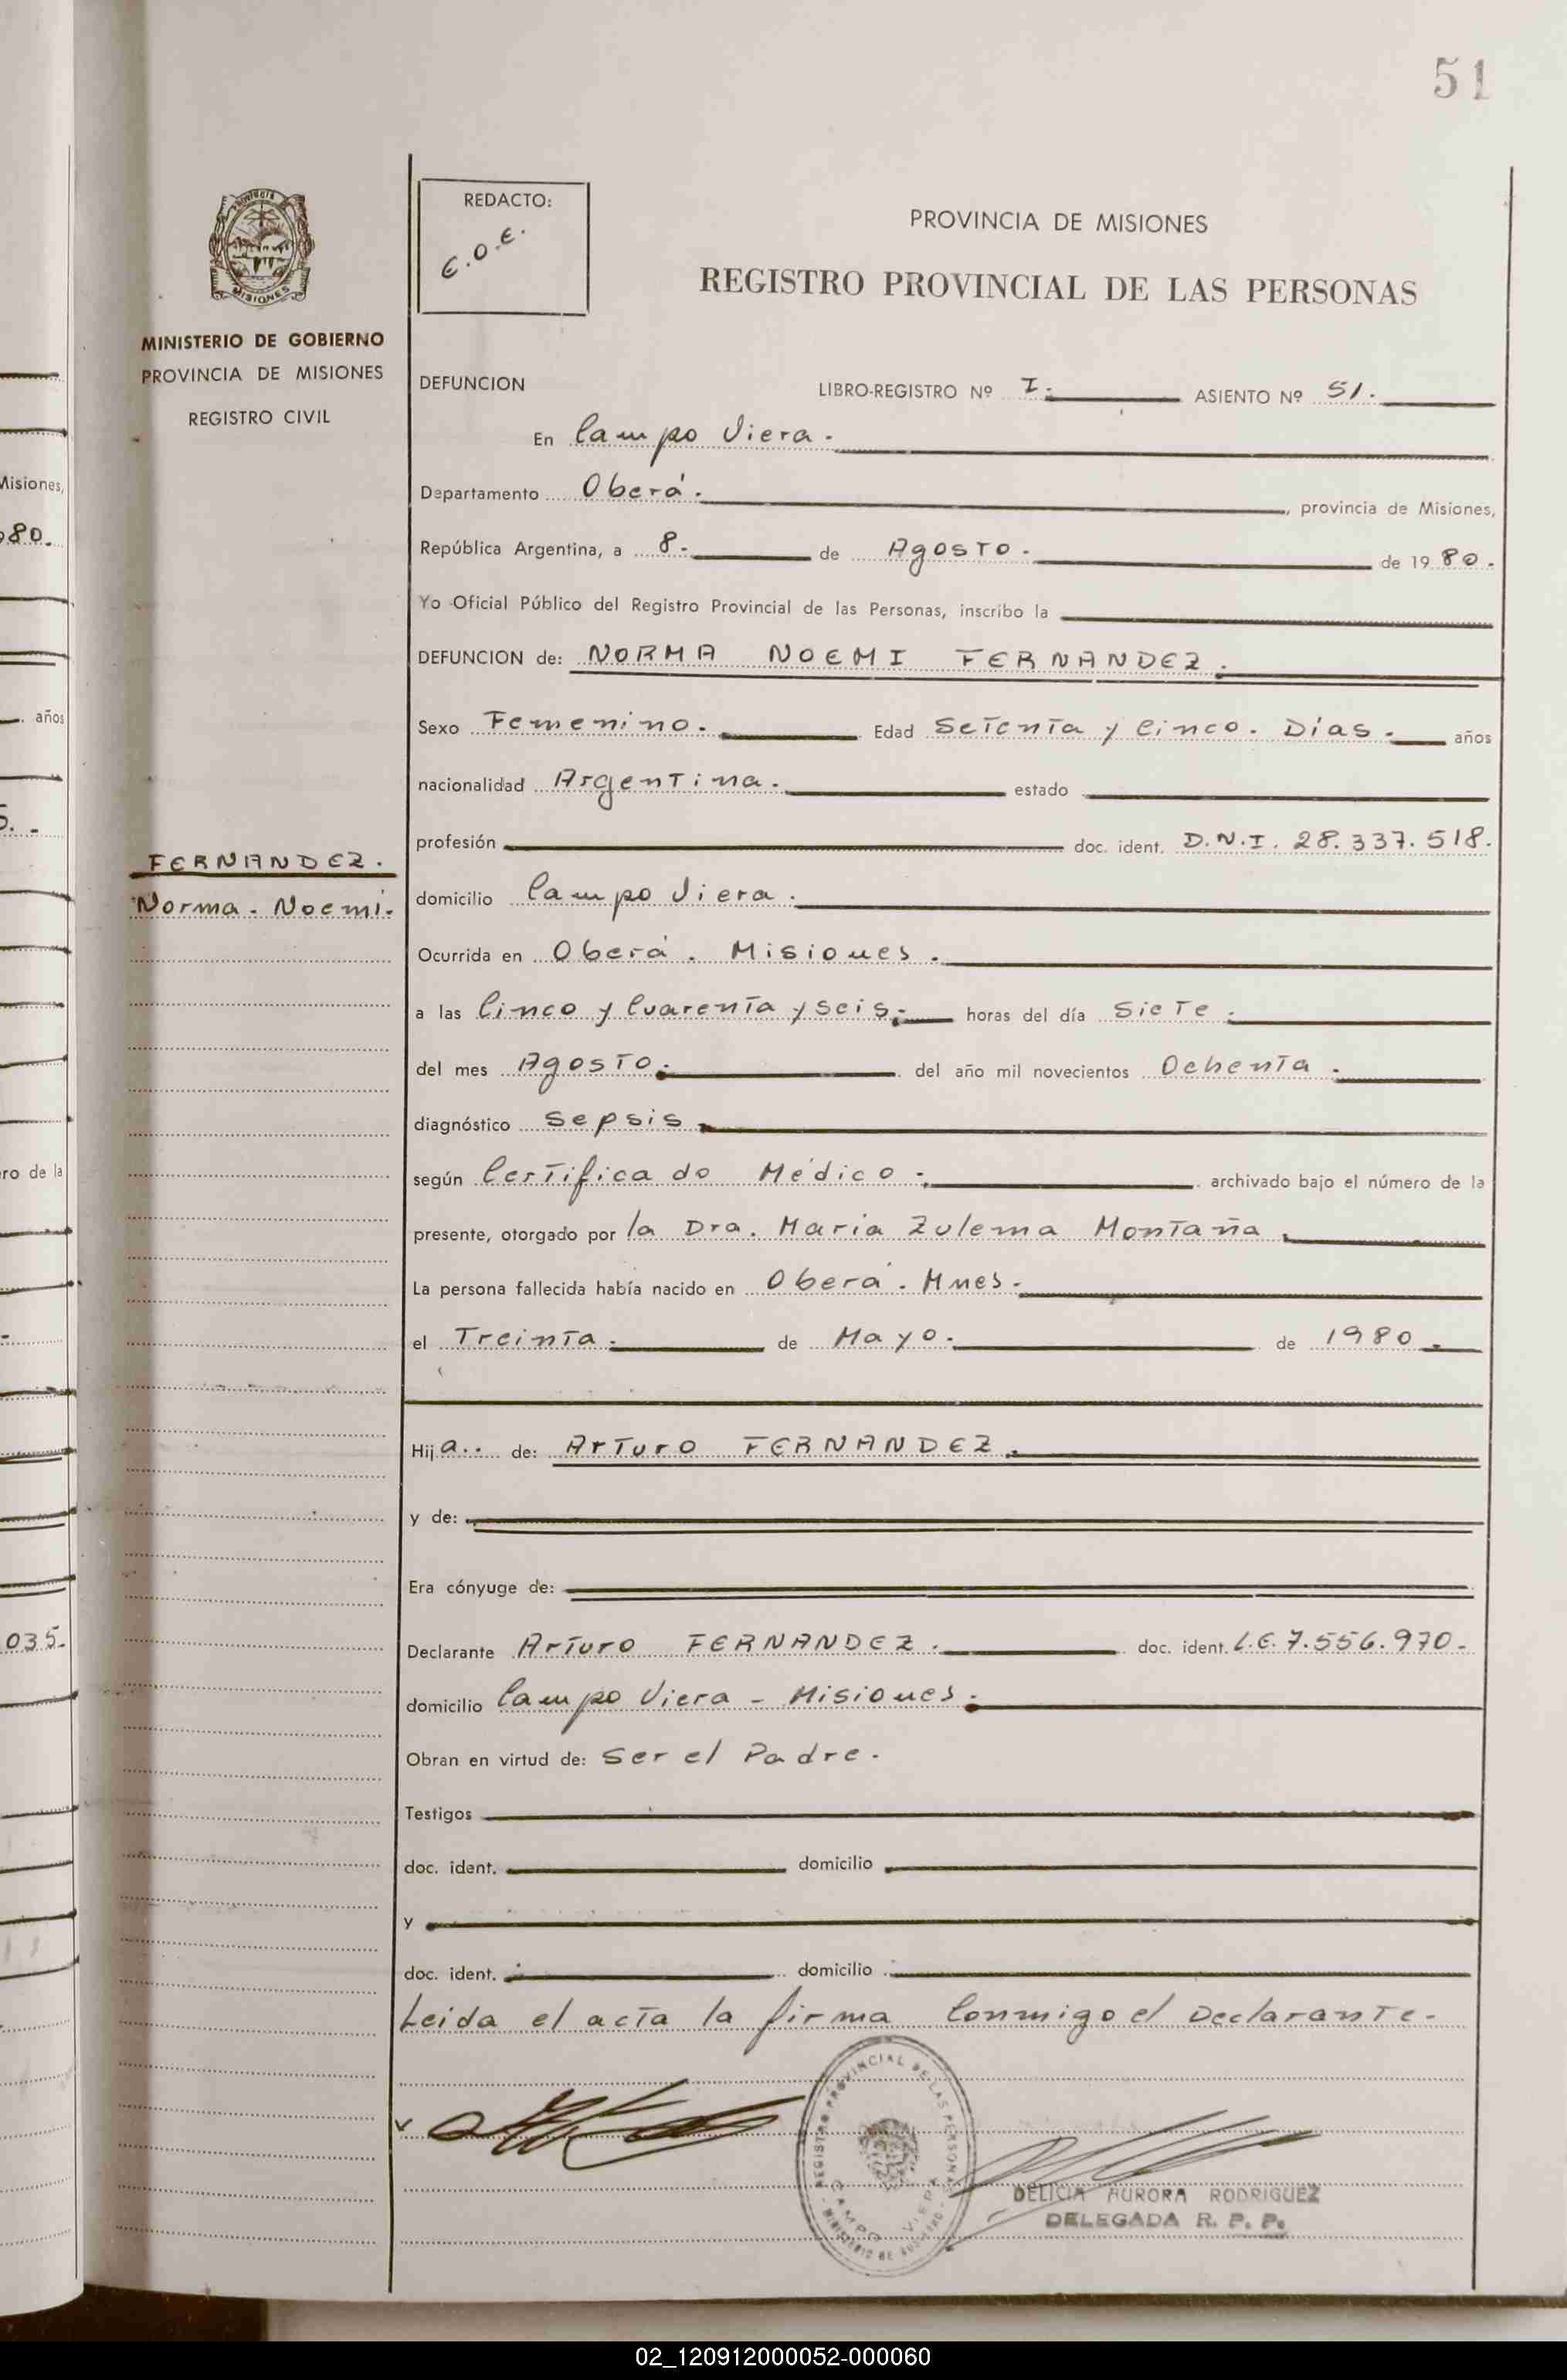 51
PROVINCIA
MISIONES
MINISTERIO DE GOBIERNO
PROVINCIA DE MISIONES
REGISTRO CIVIL
REDACTO:
E.O.E.
PROVINCIA DE MISIONES
REGISTRO PROVINCIAL DE LAS PERSONAS
DEFUNCION LIBRO-REGISTRO Nº I.- ASIENTO Nº 51.
En Campo Viera.
Departamento Oberá. , provincia de Misiones,
República Argentina, a 8.- de Agosto. de 1980.
Yo Oficial Público del Registro Provincial de las Personas, inscribo la
DEFUNCION de: NORMA NOEMI FERNANDEZ.
Sexo Femenino. Edad Setenta y Cinco. Días. años
nacionalidad Argentina. estado
profesión doc. ident. D.N.I. 28.337.518.
FERNANDEZ.
Norma. Noemi.
domicilio Campo Viera.
Ocurrida en Oberá. Misiones.
a las Cinco y Cuarenta y seis. horas del día Siete.
del mes Agosto. del año mil novecientos Ochenta.
diagnóstico Sepsis
según Certificado Médico. archivado bajo el número de la
presente, otorgado por la Dra. Maria Zulema Montaña
La persona fallecida había nacido en Oberá. Mnes.
el Treinta. de Mayo. de 1980
Hija.. de: Arturo FERNANDEZ.
y de:
Era cónyuge de:
Declarante Arturo FERNANDEZ. doc. ident. L.E. 7.556.970-
domicilio Campo Viera - Misiones.
Obran en virtud de: Ser el Padre.
Testigos
doc. ident. domicilio
y
doc. ident. domicilio
Leida el acta la firma Conmigo el Declarante-
REGISTRO PROVINCIAL DE LAS PERSONAS
CAMPO VIERA
MINISTERIO DE GOBIERNO
DELICIA AURORA RODRIGUEZ
DELEGADA R. P. P.
Misiones,
80.
años
ro de la
035-
02_120912000052-000060